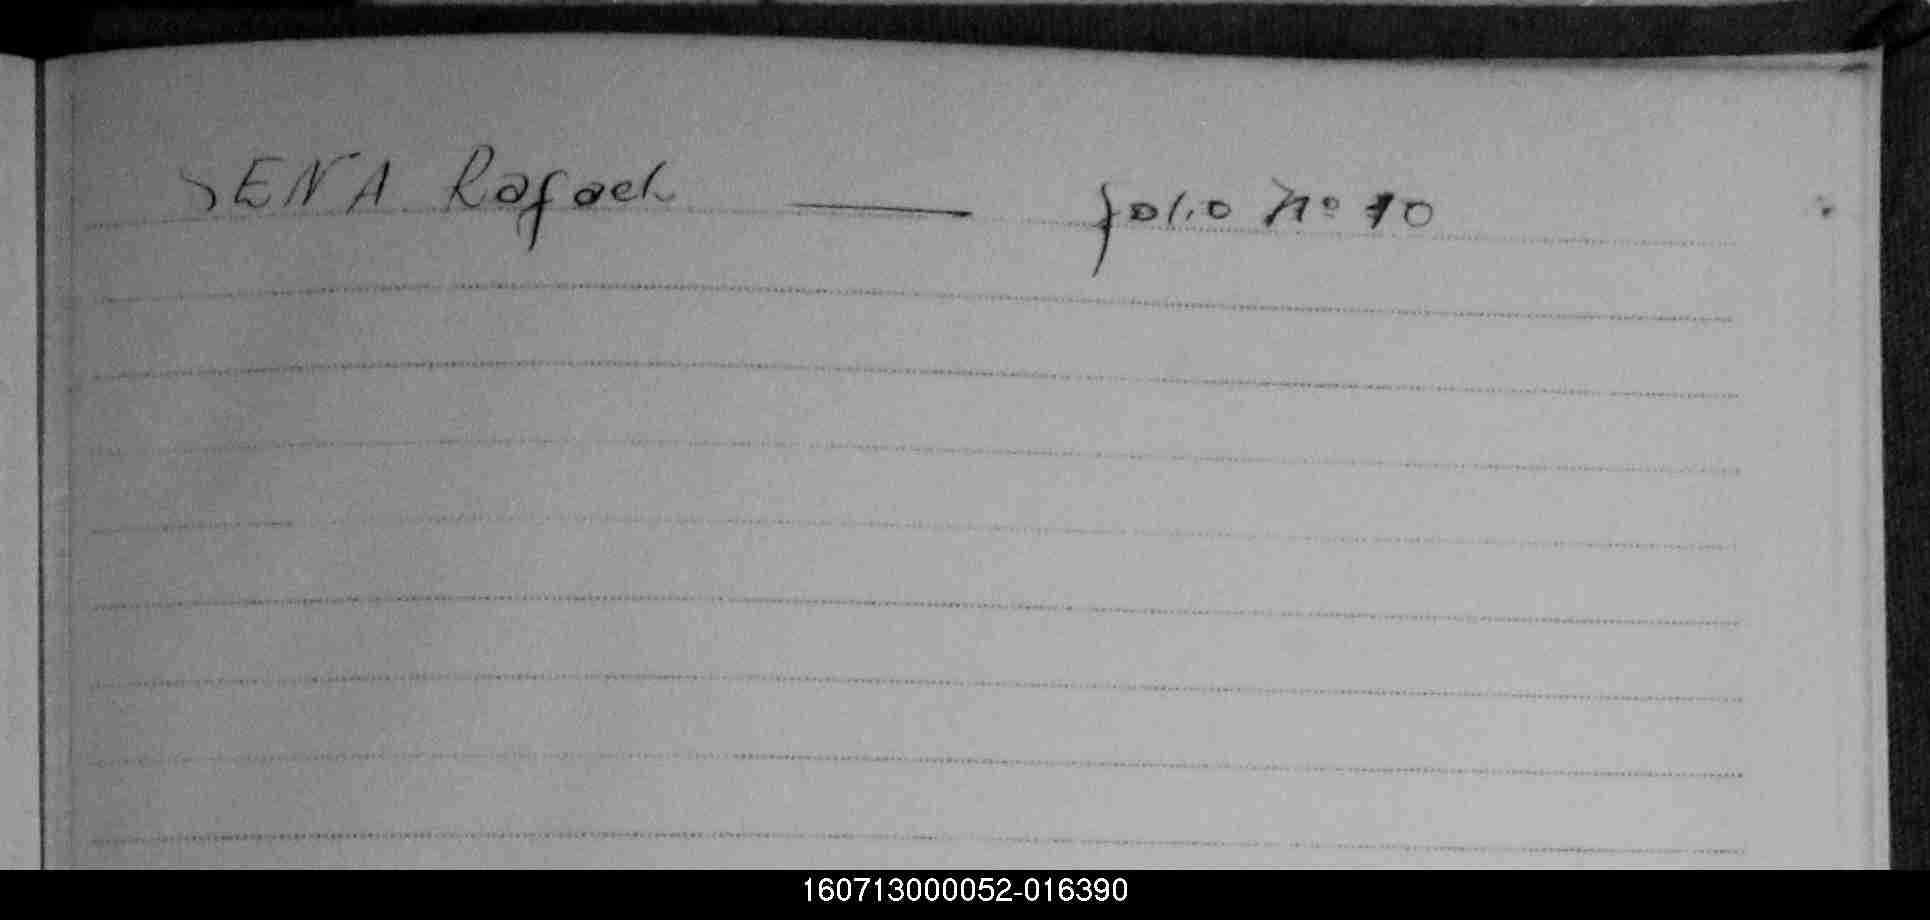 SENA Rafael — folio no 10
160713000052-016390